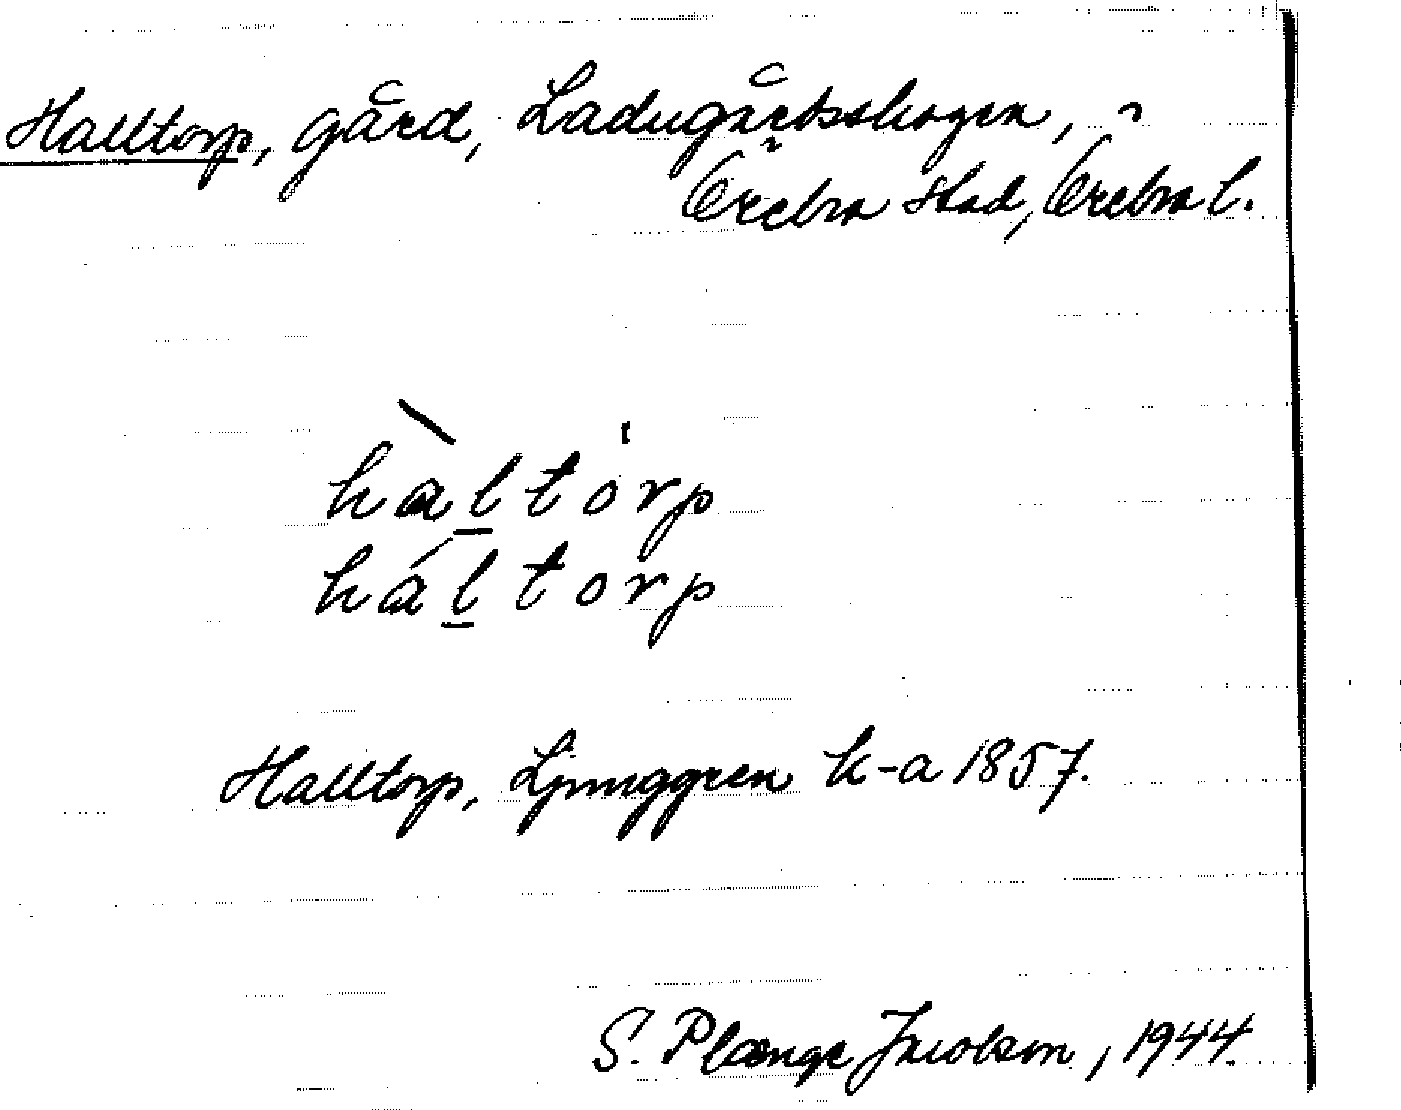 Halltorp, gård, Ladugårdsskogen,
Örebro stad, Örebro l.
hàl̲tórp
hál̲torp
Halltorp, Ljunggren k-a 1857.
S. Plænge Jacobson, 1944.